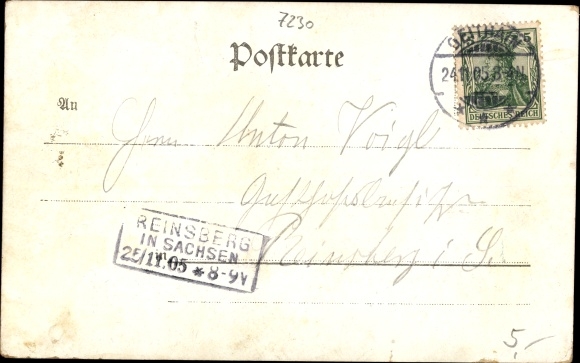 7230
Postkarte
GEITHAIN
24.11.05. 8-9N
5
DEUTSCHES REICH
An
Herrn Anton Voigt
Gasthofsbesitzer
REINSBERG
IN SACHSEN
25/11.05 * 8-9V
Reinsberg i. Sa.
5,-